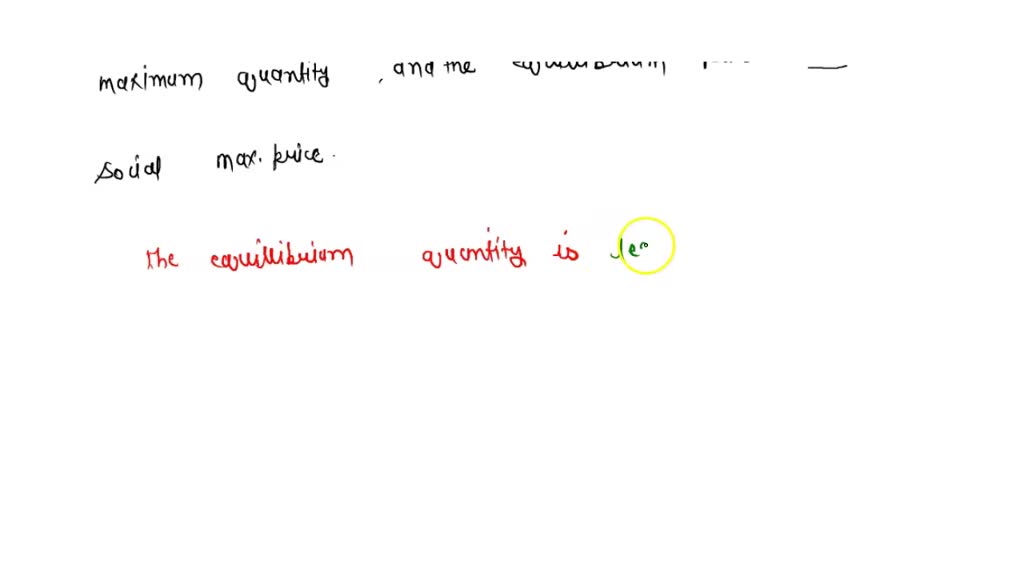 maximum quantity , and the equilibrium
social max. price.
the equilibrium quantity is